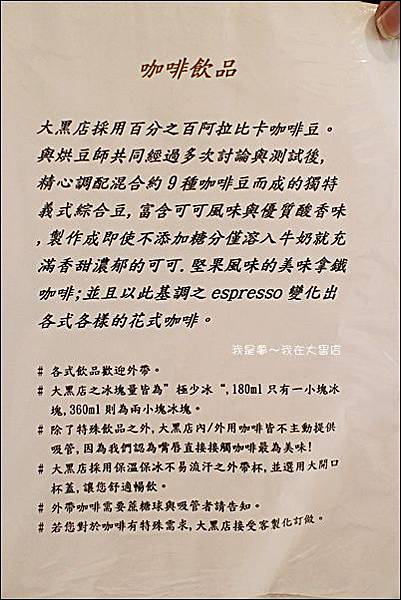 咖啡飲品
大黑店採用百分之百阿拉比卡咖啡豆。
與烘豆師共同經過多次討論與測試後,
精心調配混合約9種咖啡豆而成的獨特
義式綜合豆,富含可可風味與優質酸香味
,製作成即使不添加糖分僅溶入牛奶就充
滿香甜濃郁的可可.堅果風味的美味拿鐵
咖啡;並且以此基調之espresso變化出
各式各樣的花式咖啡。
我是夢～我在大黑店
# 各式飲品歡迎外帶。
# 大黑店之冰塊量皆為"極少冰",180ml只有一小塊冰
塊,360ml則為兩小塊冰塊。
# 除了特殊飲品之外,大黑店內/外用咖啡皆不主動提供
吸管,因為我們認為嘴唇直接接觸咖啡最為美味!
# 大黑店採用保溫保冰不易流汗之外帶杯,並選用大開口
杯蓋,讓您舒適暢飲。
# 外帶咖啡需要蔗糖球與吸管者請告知。
# 若您對於咖啡有特殊需求,大黑店接受客製化訂做。